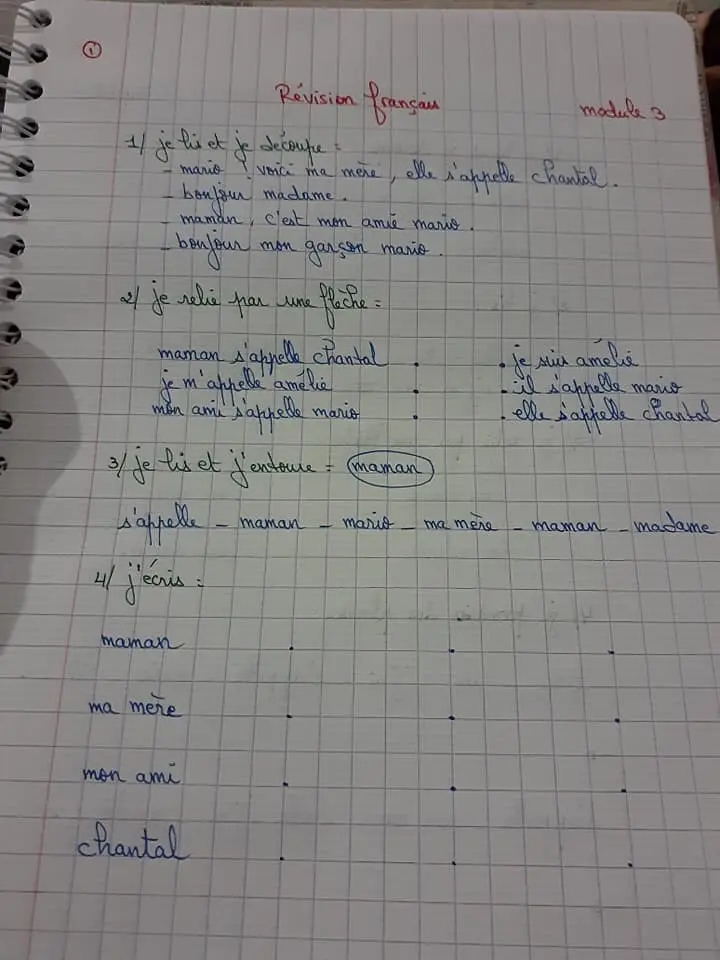 1
Révision français
module 3
1/ je lis et je découpe =
- mario : voici ma mère, elle s'appelle chantal.
- bonjour madame.
- maman, c'est mon amie mario.
- bonjour mon garçon mario.
2/ je relie par une flèche =
maman s'appelle chantal . . je suis amélie
je m'appelle amélie . . il s'appelle mario
mon ami s'appelle mario . . elle s'appelle chantal
3/ je lis et j'entoure = maman
s'appelle - maman - mario - ma mère - maman - madame
4/ j'écris =
maman . . .
ma mère . . .
mon ami . . .
chantal . . .